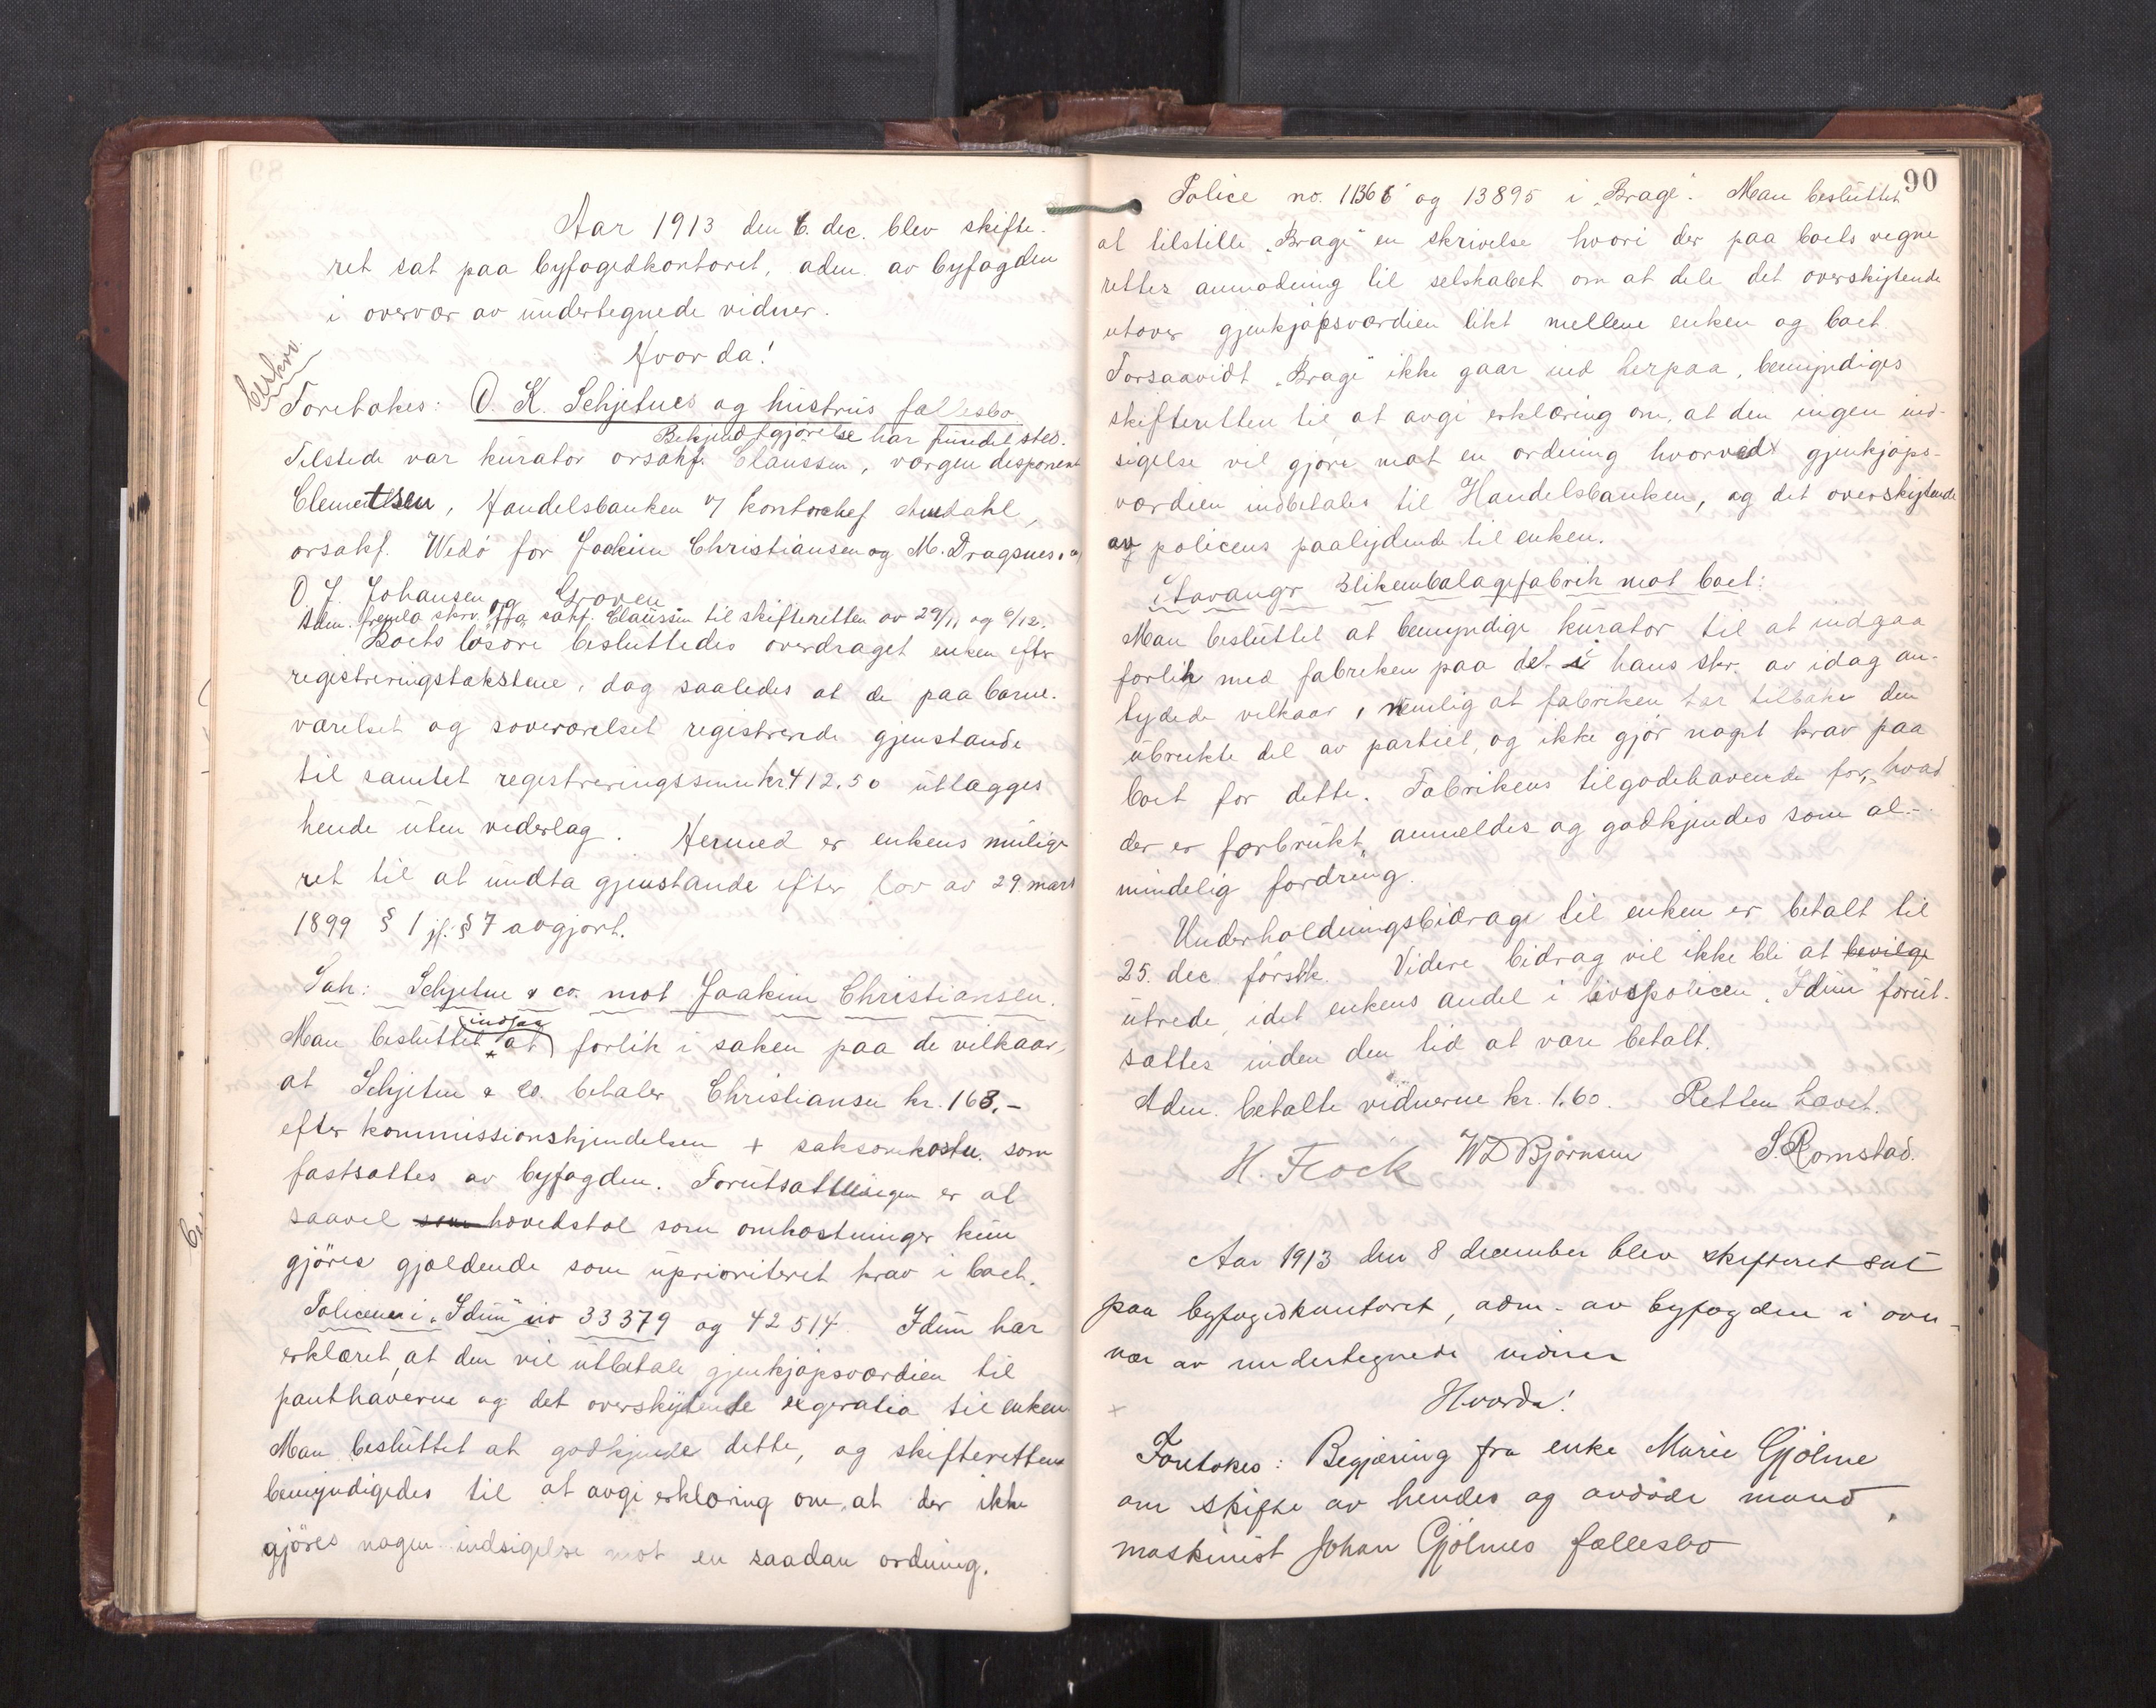 Aar 1913 den 6. dec. blev skifte-
ret sat paa byfogedkontoret, adm. av byfogden
i overvær av undertegnede vidner.
Hvorda!
beskrv.
Foretokes: O. K. Schjetnes og hustrus fællesbo
Bekjendtgjørelse har fundet sted.
Tilstede var kurator orsakf. Claussen, vergen disponent
Clementsen, Handelsbanken v/ kontorchef
orsakf. Wedö for Joakim Christiansen og M. Dragsnes
O. J. Johansen og Groven
Adm. fremla skrv. fra sakf. Claussen til skifteretten av 29/11 og 6/12.
Boets løsøre besluttedes overdraget enken efter
registreringstakstene, dog saaledes at de paa barne-
værelset og soveværelset registrerede gjenstande
til samlet registreringssum kr 412.50 utlægges
hende uten vederlag. Hermed er enkens mulige
ret til at undta gjenstande efter lov av 29 mars
1899 § 1 jf. § 7 avgjort.
Sak: Schjetne & co. mot Joakim Christiansen.
indgaa
Man besluttet at forlik i saken paa de vilkaar,
at Schjetne & co. betaler Christiansen kr. 163.-
efter kommissionskjendelsen + saksomkostn. som
fastsattes av byfogden. Forutsætningen er at
saavel som hovedstol som omkostninger kun
gjöres gjældende som uprioritert krav i boet.
Policerne i „Idun" no 33379 og 42514. Idun har
erklæret, at den vil utbetale gjenkjøpsværdien til
panthaverne og det overskytende exgratia til enken
Man besluttet at godkjende dette, og skifteretten
bemyndigedes til at avgi erklæring om, at der ikke
gjöres nogen indsigelse mot en saadan ordning.
90
Police no. 11366 og 13895 i „Brage". Man besluttet
at tilstille „Brage" en skrivelse hvori der paa boets vegne
rettes anmodning til selskabet om at dele det overskytende
utover gjenkjøpsværdien likt mellem enken og boet
Forsaavidt „Brage" ikke gaar ind herpaa, bemyndiges
skifteretten til at avgi erklæring om, at den ingen ind-
sigelse vil gjøre mot en ordning hvorved gjenkjøps-
værdien indbetales til Handelsbanken, og det overskytende
av policens paalydende til enken.
Stavanger Blikemballagefabrik mot boet:
Man besluttet at bemyndige kurator til at indgaa
forlik med fabriken paa det i hans skr. av idag an-
tydede vilkaar, nemlig at fabriken tar tilbake den
ubrukte del av partiet, og ikke gjør noget krav paa
boet for dette. Fabrikens tilgodehavende for, hvad
der er forbrukt, anmeldes og godkjendes som al-
mindelig fordring.
Underholdningsbidrag til enken er betalt til
25. dec. førstk. Videre bidrag vil ikke bli at bevilge
utrede, idet enkens andel i livspolicen „Idun" forut-
sættes inden den tid at være betalt.
Adm. betalte vidnerne kr. 1.60. Retten hævet.
H. Flock WD Bjørnsen S. Romstad.
Aar 1913 den 8 december blev skifteret sat
paa byfogedkontoret, adm. av byfogden i over-
vær av undertegnede vidner
Hvorda!
Foretokes: Begjæring fra enke Marie Gjölme
om skifte av hendes og avdöde mand,
maskinist Johan Gjölmes fællesbo